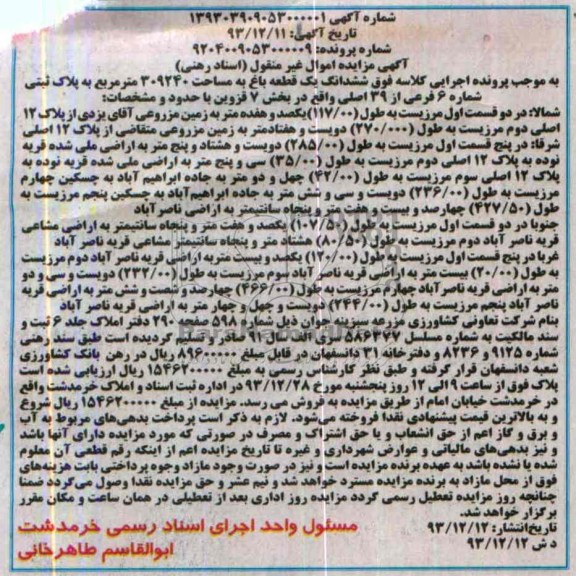 شماره آگهی ۱۳۹۳۰۳۹۰۹۰۵۳۰۰۰۰۰۱
تاریخ آگهی: ۹۳/۱۲/۱۱
شماره پرونده: ۹۲۰۴۰۰۹۰۵۳۰۰۰۰۰۹
آگهی مزایده اموال غیر منقول (اسناد رهنی)
به موجب پرونده اجرایی کلاسه فوق ششدانگ یک قطعه باغ به مساحت ۳۰۹۲۴۰ مترمربع به پلاک ثبتی
شماره ۶ فرعی از ۳۹ اصلی واقع در بخش ۷ قزوین با حدود و مشخصات:
شمالا: در دو قسمت اول مرزیست به طول (۱۱۷/۰۰) یکصد و هفده متر به زمین مزروعی آقای یزدی از پلاک ۱۲
اصلی دوم مرزیست به طول (۲۷۰/۰۰۰) دویست و هفتاد متر به زمین مزروعی متقاضی از پلاک ۱۲ اصلی
شرقا: در پنج قسمت اول مرزیست به طول (۲۸۵/۰۰) دویست و هشتاد و پنج متر به اراضی ملی شده قریه
نوده به پلاک ۱۲ اصلی دوم مرزیست به طول (۳۵/۰۰) سی و پنج متر به اراضی ملی شده قریه نوده به
پلاک ۱۲ اصلی سوم مرزیست به طول (۴۲/۰۰) چهل و دو متر به جاده ابراهیم آباد به چسکین چهارم
مرزیست به طول (۲۳۶/۰۰) دویست و سی و شش متر به جاده ابراهیم‌آباد به چسکین پنجم مرزیست به
طول (۴۲۷/۵۰) چهارصد و بیست و هفت متر و پنجاه سانتیمتر به اراضی ناصرآباد
جنوبا در دو قسمت اول مرزیست به طول (۱۰۷/۵۰) یکصد و هفت متر و پنجاه سانتیمتر به اراضی مشاعی
قریه ناصر آباد دوم مرزیست به طول (۸۰/۵۰) هشتاد متر و پنجاه سانتیمتر مشاعی قریه ناصر آباد
غربا در پنج قسمت اول مرزیست به طول (۱۲۰/۰۰) یکصد و بیست متر به اراضی قریه ناصر آباد دوم مرزیست
به طول (۲۰/۰۰) بیست متر به اراضی قریه ناصر آباد سوم مرزیست به طول (۲۳۲/۰۰) دویست و سی و دو
متر به اراضی قریه ناصرآباد چهارم مرزیست به طول (۴۶۶/۰۰) چهارصد و شصت و شش متر به اراضی قریه
ناصر آباد پنجم مرزیست به طول (۲۴۴/۰۰) دویست و چهل و چهار متر به اراضی قریه ناصر آباد
بنام شرکت تعاونی کشاورزی مزرعه سبزینه جوان ذیل شماره ۵۹۸ صفحه ۲۹۰ دفتر املاک جلد ۶ ثبت و
سند مالکیت به شماره مسلسل ۵۸۶۳۷۷ سری الف سال ۹۱ صادر و تسلیم گردیده است طبق سند رهنی
شماره ۹۱۲۵ و ۸۲۳۶ و دفترخانه ۳۱ دانسفهان در قابل مبلغ ۸۹۶۰۰۰۰۰۰ ریال در رهن بانک کشاورزی
شعبه دانسفهان قرار گرفته و طبق نظر کارشناس رسمی به مبلغ ۱۵۴۶۲۰۰۰۰۰ ریال ارزیابی شده است
پلاک فوق از ساعت ۹ الی ۱۲ روز پنجشنبه مورخ ۹۳/۱۲/۲۸ در اداره ثبت اسناد و املاک خرمدشت واقع
در خرمدشت خیابان امام از طریق مزایده به فروش می رسد. مزایده از مبلغ ۱۵۴۶۲۰۰۰۰۰ ریال شروع
و به بالاترین قیمت پیشنهادی نقدا فروخته می‌شود. لازم به ذکر است پرداخت بدهی‌های مربوط به آب
و برق و گاز اعم از حق انشعاب و یا حق اشتراک و مصرف در صورتی که مورد مزایده دارای آنها باشد
و نیز بدهی‌های مالیاتی و عوارض شهرداری و غیره تا تاریخ مزایده اعم از اینکه رقم قطعی آن معلوم
شده یا نشده باشد به عهده برنده مزایده است و نیز در صورت وجود مازاد وجوه پرداختی بابت هزینه‌های
فوق از محل مازاد به برنده مزایده مسترد خواهد شد و نیم عشر و حق مزایده نقدا وصول می‌گردد ضمنا
چنانچه روز مزایده تعطیل رسمی گردد مزایده روز اداری بعد از تعطیلی در همان ساعت و مکان مقرر
برگزار خواهد شد.
تاریخ انتشار: ۹۳/۱۲/۱۲
د ش ۹۳/۱۲/۱۲
مسئول واحد اجرای اسناد رسمی خرمدشت
ابوالقاسم طاهرخانی